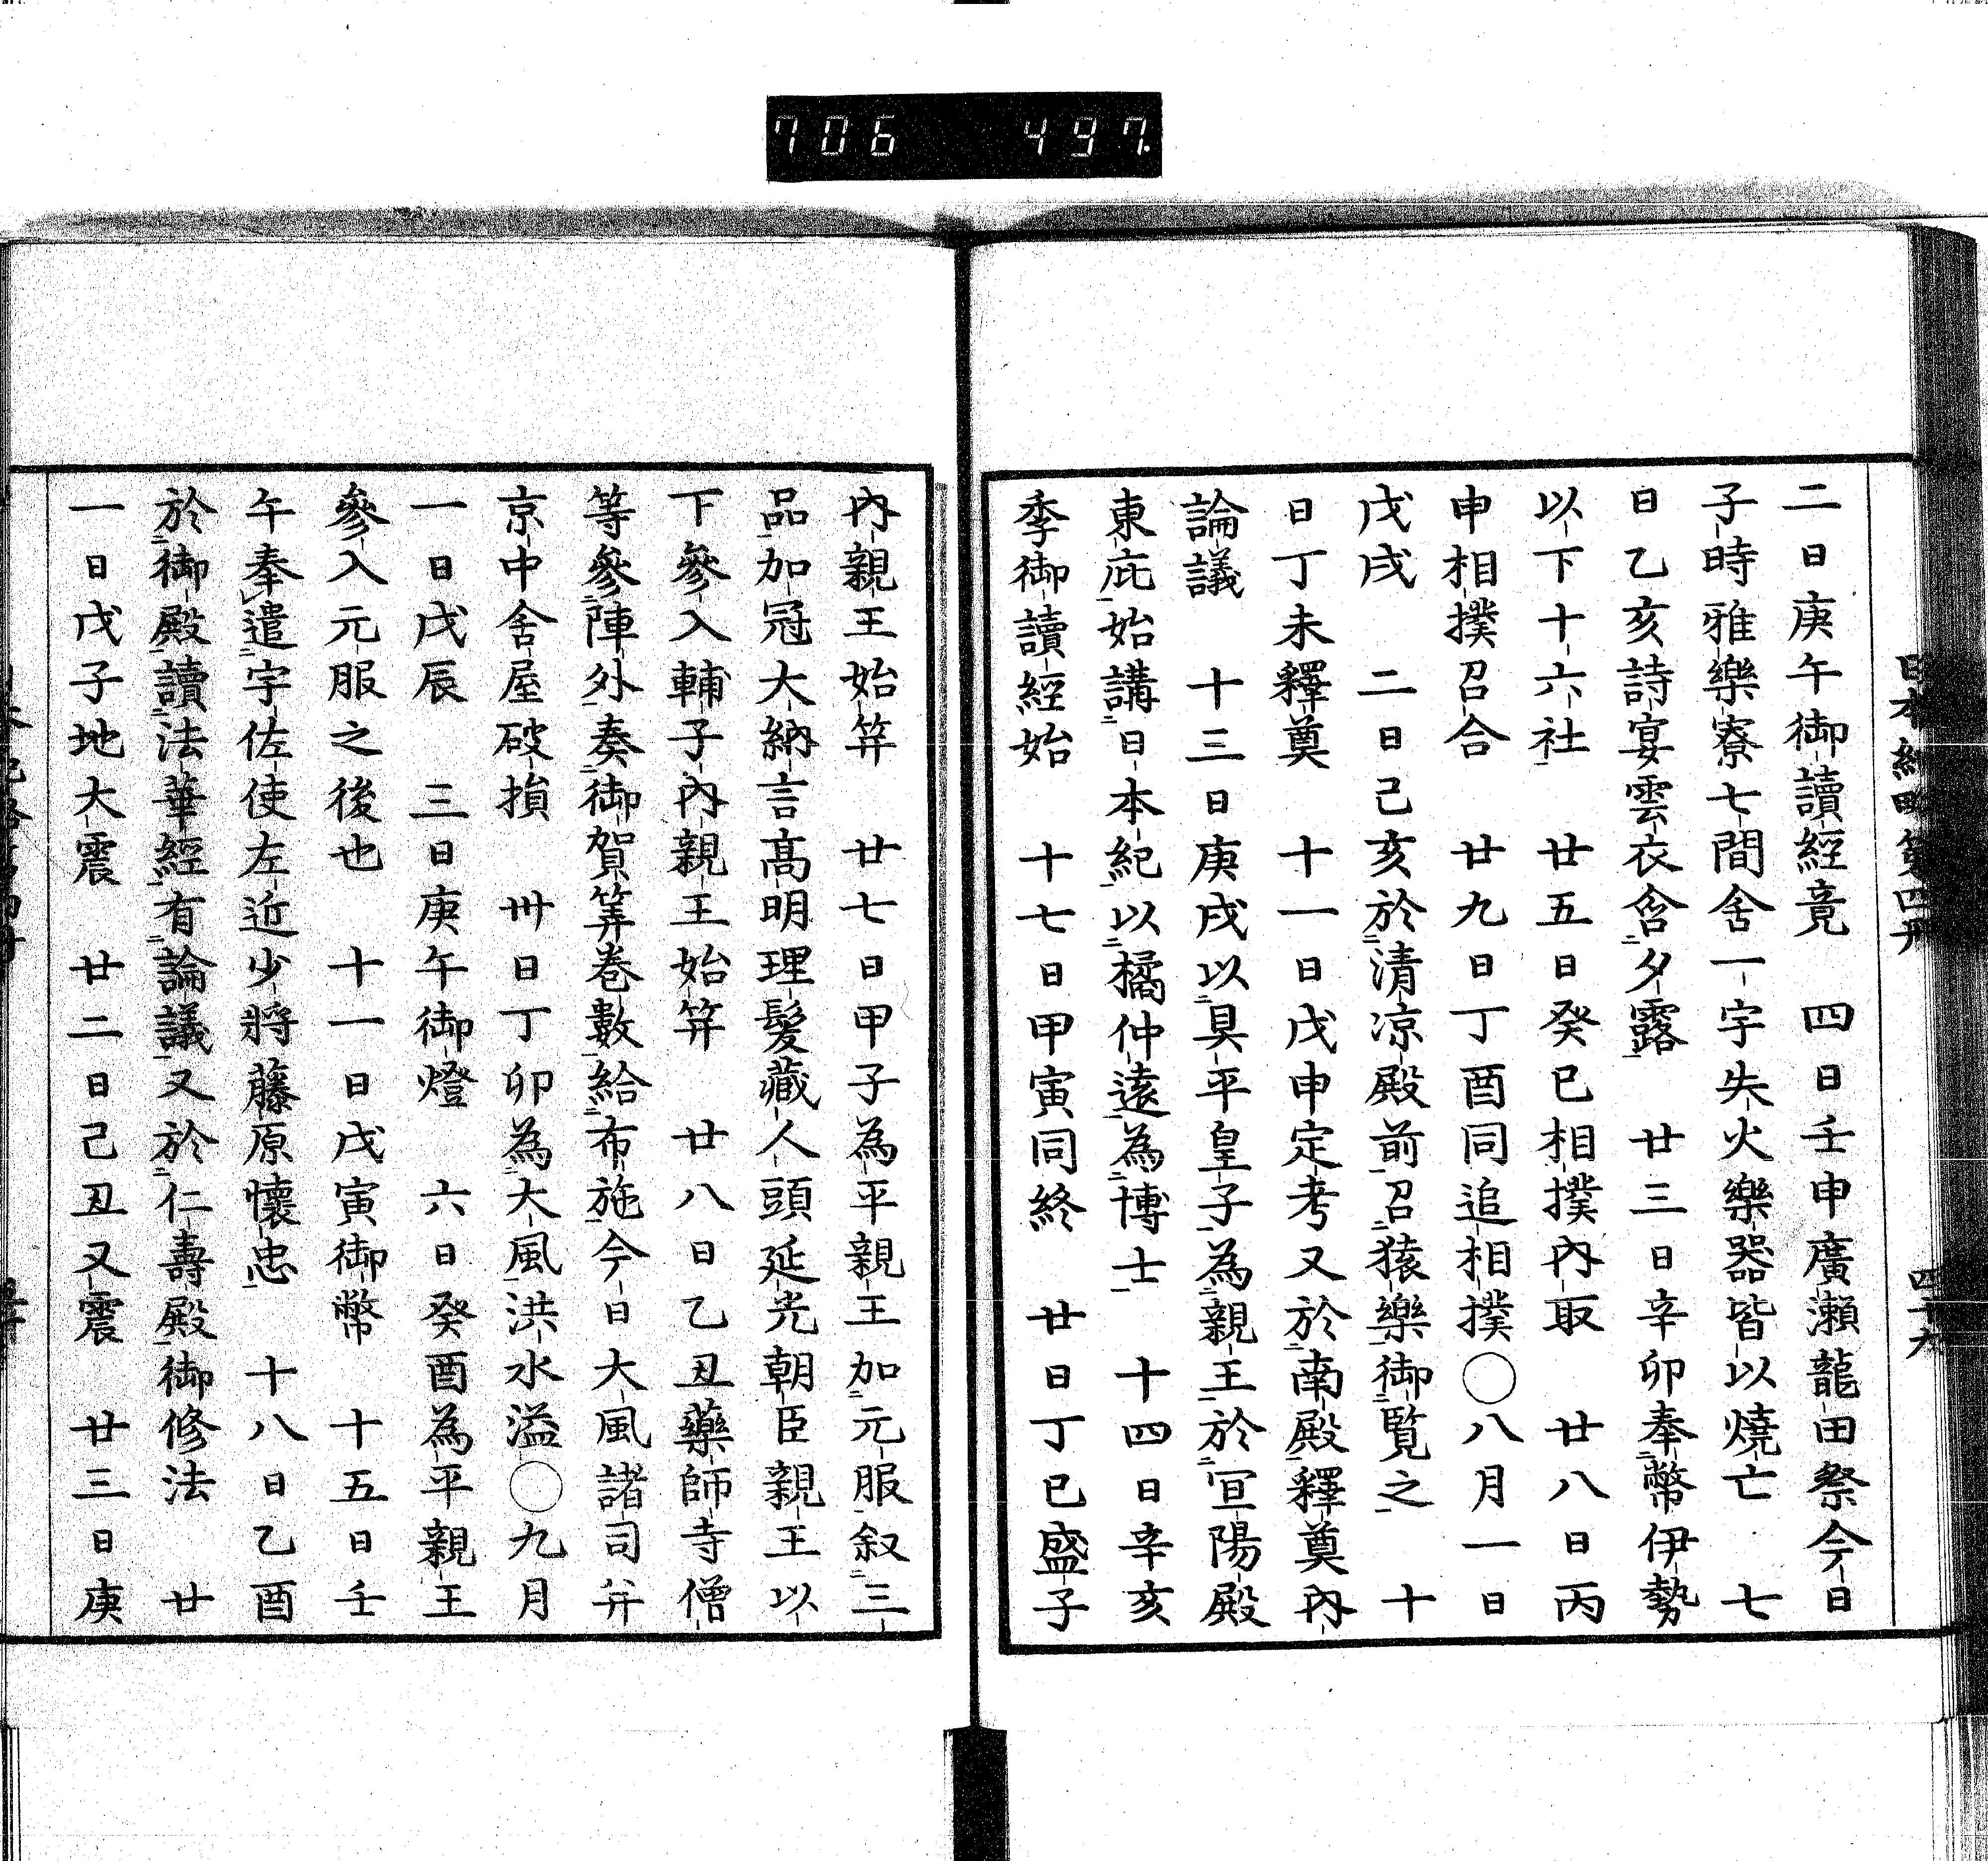 706 497.
二日庚午御讀經竟 四日壬申廣瀨龍田祭今日
子時雅樂寮七間舍一宇失火樂器皆以燒亡 七
日乙亥詩宴雲衣含夕露 廿三日辛卯奉幣伊勢
以下十六社 廿五日癸巳相撲內取 廿八日丙
申相撲召合 廿九日丁酉同追相撲〇八月一日
戊戌 二日己亥於清凉殿前召猿樂御覧之 十
日丁未釋奠 十一日戊申定考又於南殿釋奠內
論議 十三日庚戌以具平皇子為親王於宣陽殿
東庇始講日本紀以橘仲遠為博士 十四日辛亥
季御讀經始 十七日甲寅同終 廿日丁巳盛子
內親王始笄 廿七日甲子為平親王加元服叙三
品加冠大納言高明理髮藏人頭延光朝臣親王以
下參入輔子內親王始笄 廿八日乙丑藥師寺僧
等參陣外奏御賀筭卷數給布施今日大風諸司并
京中舍屋破損 卅日丁卯為大風洪水溢〇九月
一日戊辰 三日庚午御燈 六日癸酉為平親王
參入元服之後也 十一日戊寅御幣 十五日壬
午奉遣宇佐使左近少將藤原懷忠 十八日乙酉
於御殿讀法華經有論議又於仁壽殿御修法 廿
一日戊子地大震 廿二日己丑又震 廿三日庚